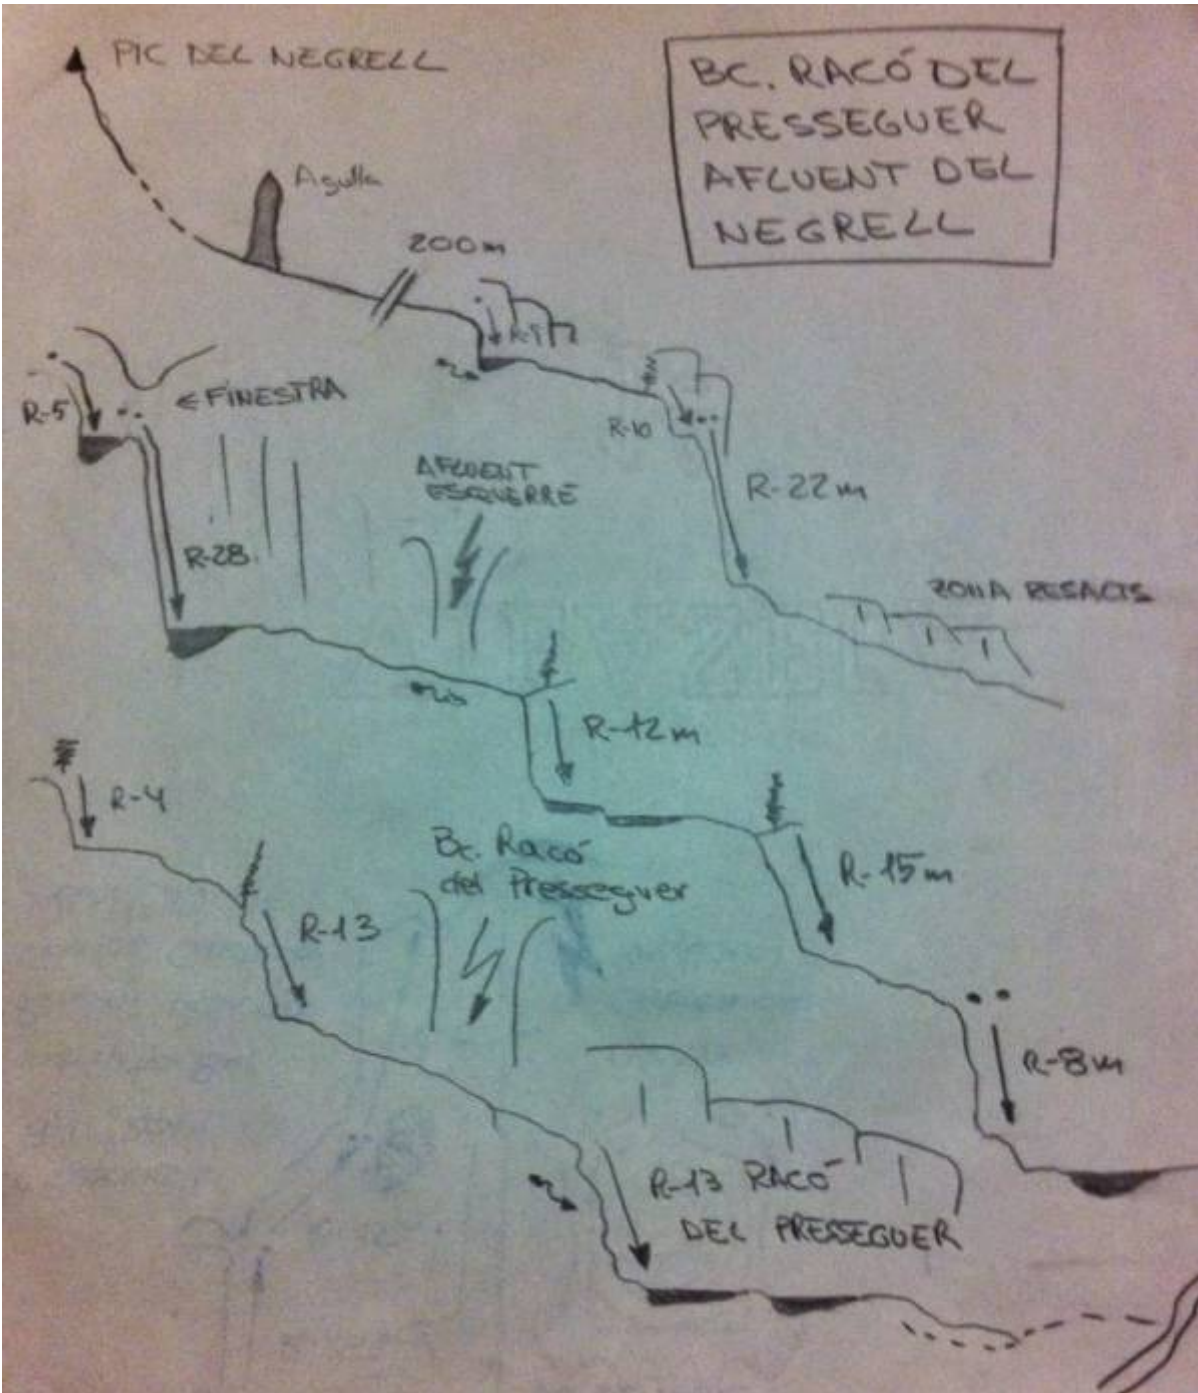 PIC DEL NEGRELL
BC. RACÓ DEL
PRESSEGUER
AFLUENT DEL
NEGRELL
Agulla
200m
R-5
← FINESTRA
R-10
R-22m
AFLUENT
ESQUERRE
R-28
ZONA RESALTS
R-12m
R-4
Bc. Racó
del Presseguer
R-15m
R-13
R-8m
R-13 RACÓ
DEL PRESSEGUER